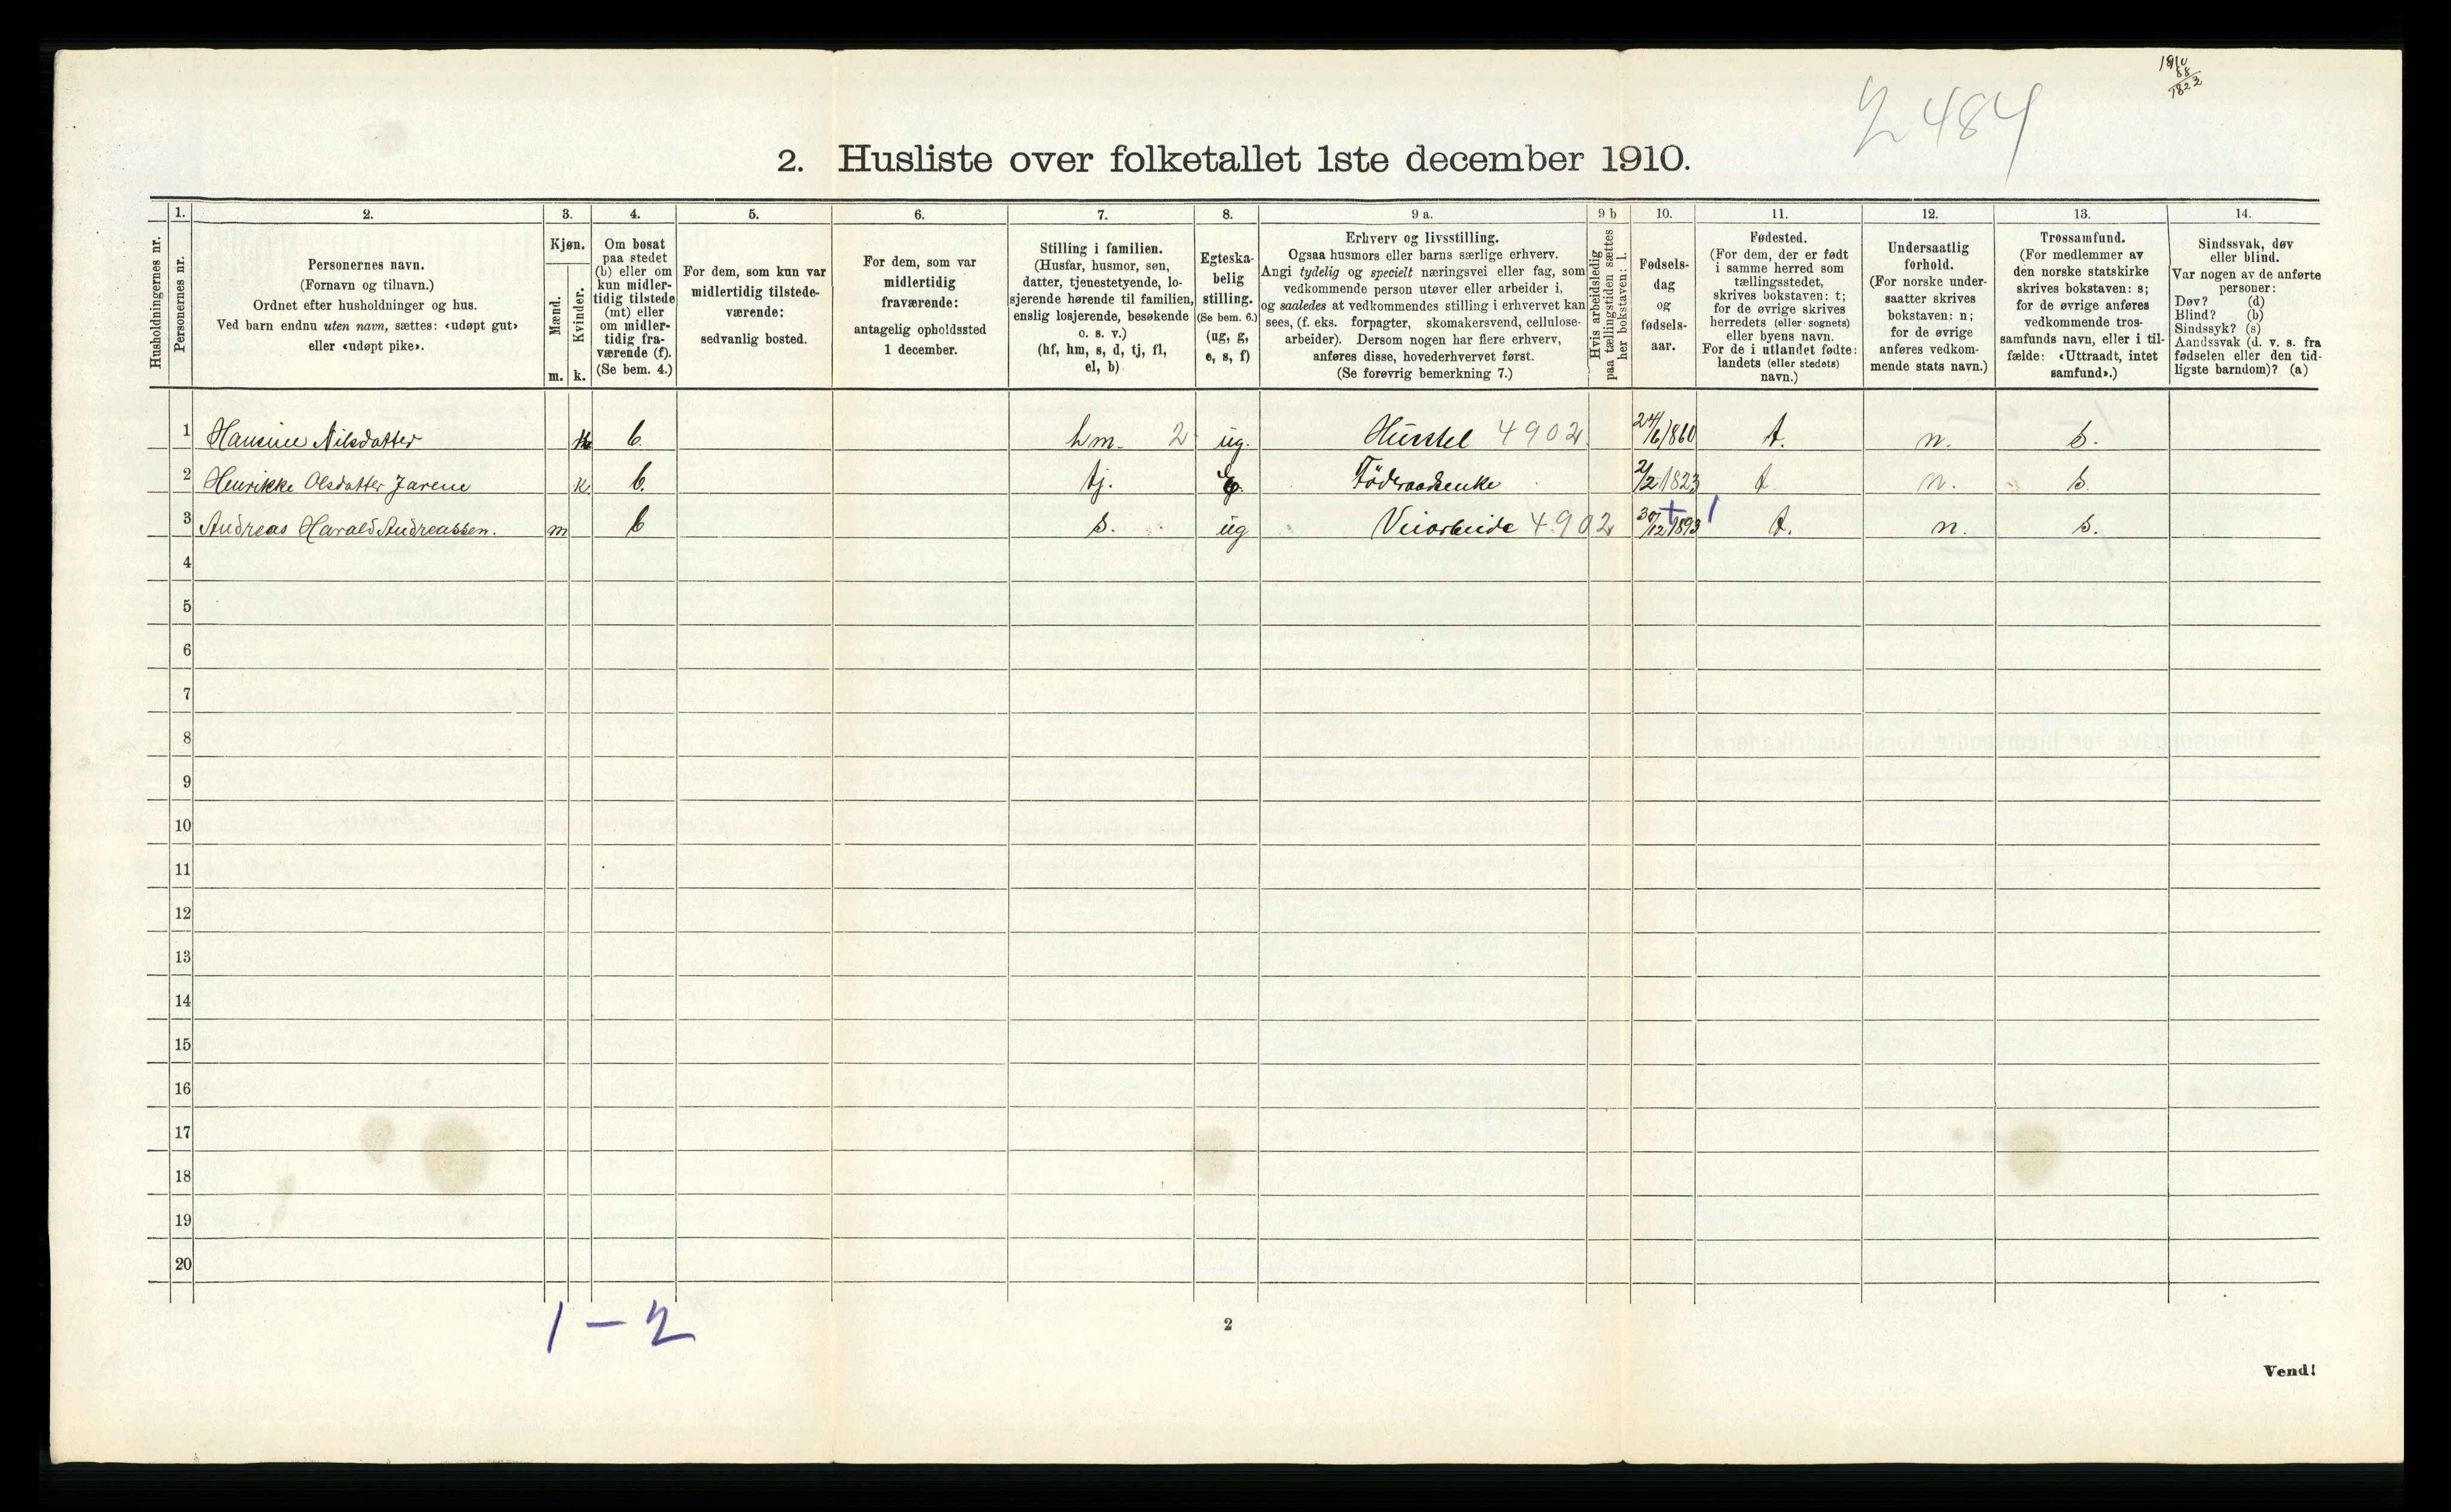 1910
88
1822
2484
2. Husliste over folketallet 1ste december 1910.
Husholdningernes nr.
1.
Personernes nr.
2.
Personernes navn.
(Fornavn og tilnavn.)
Ordnet efter husholdninger og hus.
Ved barn endnu uten navn, sættes: «udøpt gut»
eller «udøpt pike».
3.
Kjøn.
Mænd.
Kvinder.
m. k.
4.
Om bosat
paa stedet
(b) eller om
kun midler-
tidig tilstede
(mt) eller
om midler-
tidig fra-
værende (f).
(Se bem. 4.)
5.
For dem, som kun var
midlertidig tilstede-
værende:
sedvanlig bosted.
6.
For dem, som var
midlertidig
fraværende:
antagelig opholdssted
1 december.
7.
Stilling i familien.
(Husfar, husmor, søn,
datter, tjenestetyende, lo-
sjerende hørende til familien,
enslig losjerende, besøkende
o. s. v.)
(hf, hm, s, d, tj, fl,
el, b)
8.
Egteska-
belig
stilling.
(Se bem. 6.)
(ug, g,
e, s, f)
9 a.
Erhverv og livsstilling.
Ogsaa husmors eller barns særlige erhverv.
Angi tydelig og specielt næringsvei eller fag, som
vedkommende person utøver eller arbeider i,
og saaledes at vedkommendes stilling i erhvervet kan
sees, (f. eks. forpagter, skomakersvend, cellulose-
arbeider). Dersom nogen har flere erhverv,
anføres disse, hovederhvervet først.
(Se forøvrig bemerkning 7.)
9 b
Hvis arbeidsledig
paa tællingstiden sættes
her bokstaven: l.
10.
Fødsels-
dag
og
fødsels-
aar.
11.
Fødested.
(For dem, der er født
i samme herred som
tællingsstedet,
skrives bokstaven: t;
for de øvrige skrives
herredets (eller sognets)
eller byens navn.
For de i utlandet fødte:
landets (eller stedets)
navn.)
12.
Undersaatlig
forhold.
(For norske under-
saatter skrives
bokstaven: n;
for de øvrige
anføres vedkom-
mende stats navn.)
13.
Trossamfund.
(For medlemmer av
den norske statskirke
skrives bokstaven: s;
for de øvrige anføres
vedkommende tros-
samfunds navn, eller i til-
fælde: «Uttraadt, intet
samfund».)
14.
Sindssvak, døv
eller blind.
Var nogen av de anførte
personer:
Døv? (d)
Blind? (b)
Sindssyk? (s)
Aandssvak (d. v. s. fra
fødselen eller den tid-
ligste barndom)? (a)
1 Hansine Nilsdatter k b. hm. 2 ug. Husstel 4902 24/6 1860 t. n. s.
2 Henrikke Olsdatter Jarene k. b. tj. e. Föderaadsenke 2/2 1823 t. n. s.
3 Andreas Harald Andreassen. m b s. ug Veiarbeide 4902 30/12 1893 + 1 t. n. s.
4
5
6
7
8
9
10
11
12
13
14
15
16
17
18
19
20
1 - 2
2
Vend!